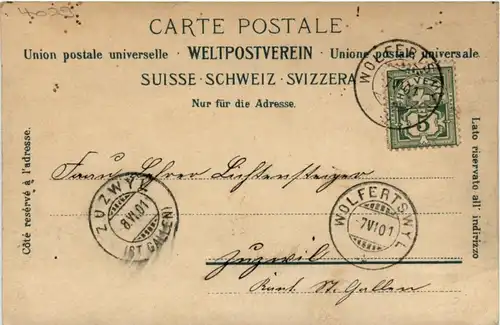 4055
CARTE POSTALE
Union postale universelle · WELTPOSTVEREIN · Unione postale universale
SUISSE · SCHWEIZ · SVIZZERA
Nur für die Adresse.
WOLFERTSWYL
5
Côté réservé à l'adresse.
Lato riservato all' indirizzo
Frau Lehrer Lichtensteiger
ZUZWYL
8.VI.01
(ST. GALLEN)
WOLFERTSWYL
7.VI.01
Zuzwil
Kant. St. Gallen